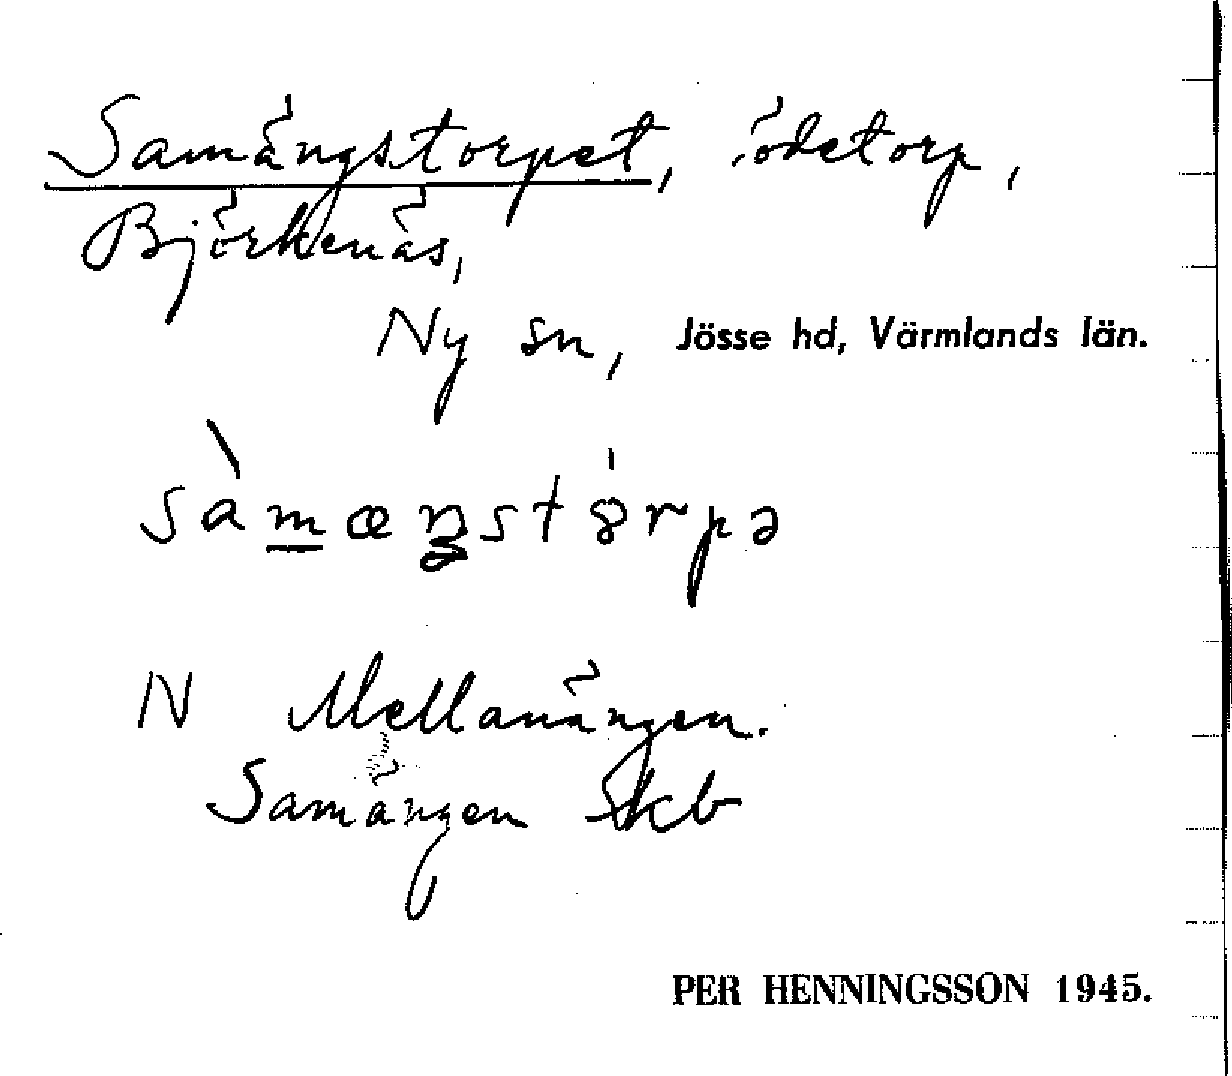 Samängstorpet, ödetorp,
Björkenäs,
Ny sn, Jösse hd, Värmlands län.
sàmæŋstȯrpə
N Mellanängen.
Samängen Skb
PER HENNINGSSON 1945.